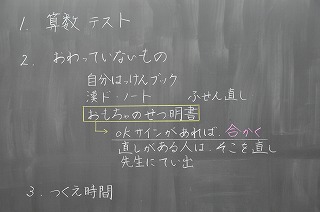 1. 算数 テスト
2. おわっていないもの
自分はっけんブック
漢ド・ノート ふせん直し
おもちゃのせつ明書
→ OKサインがあれば、合かく
直しがある人は、そこを直し
先生にてい出
3. つくえ時間